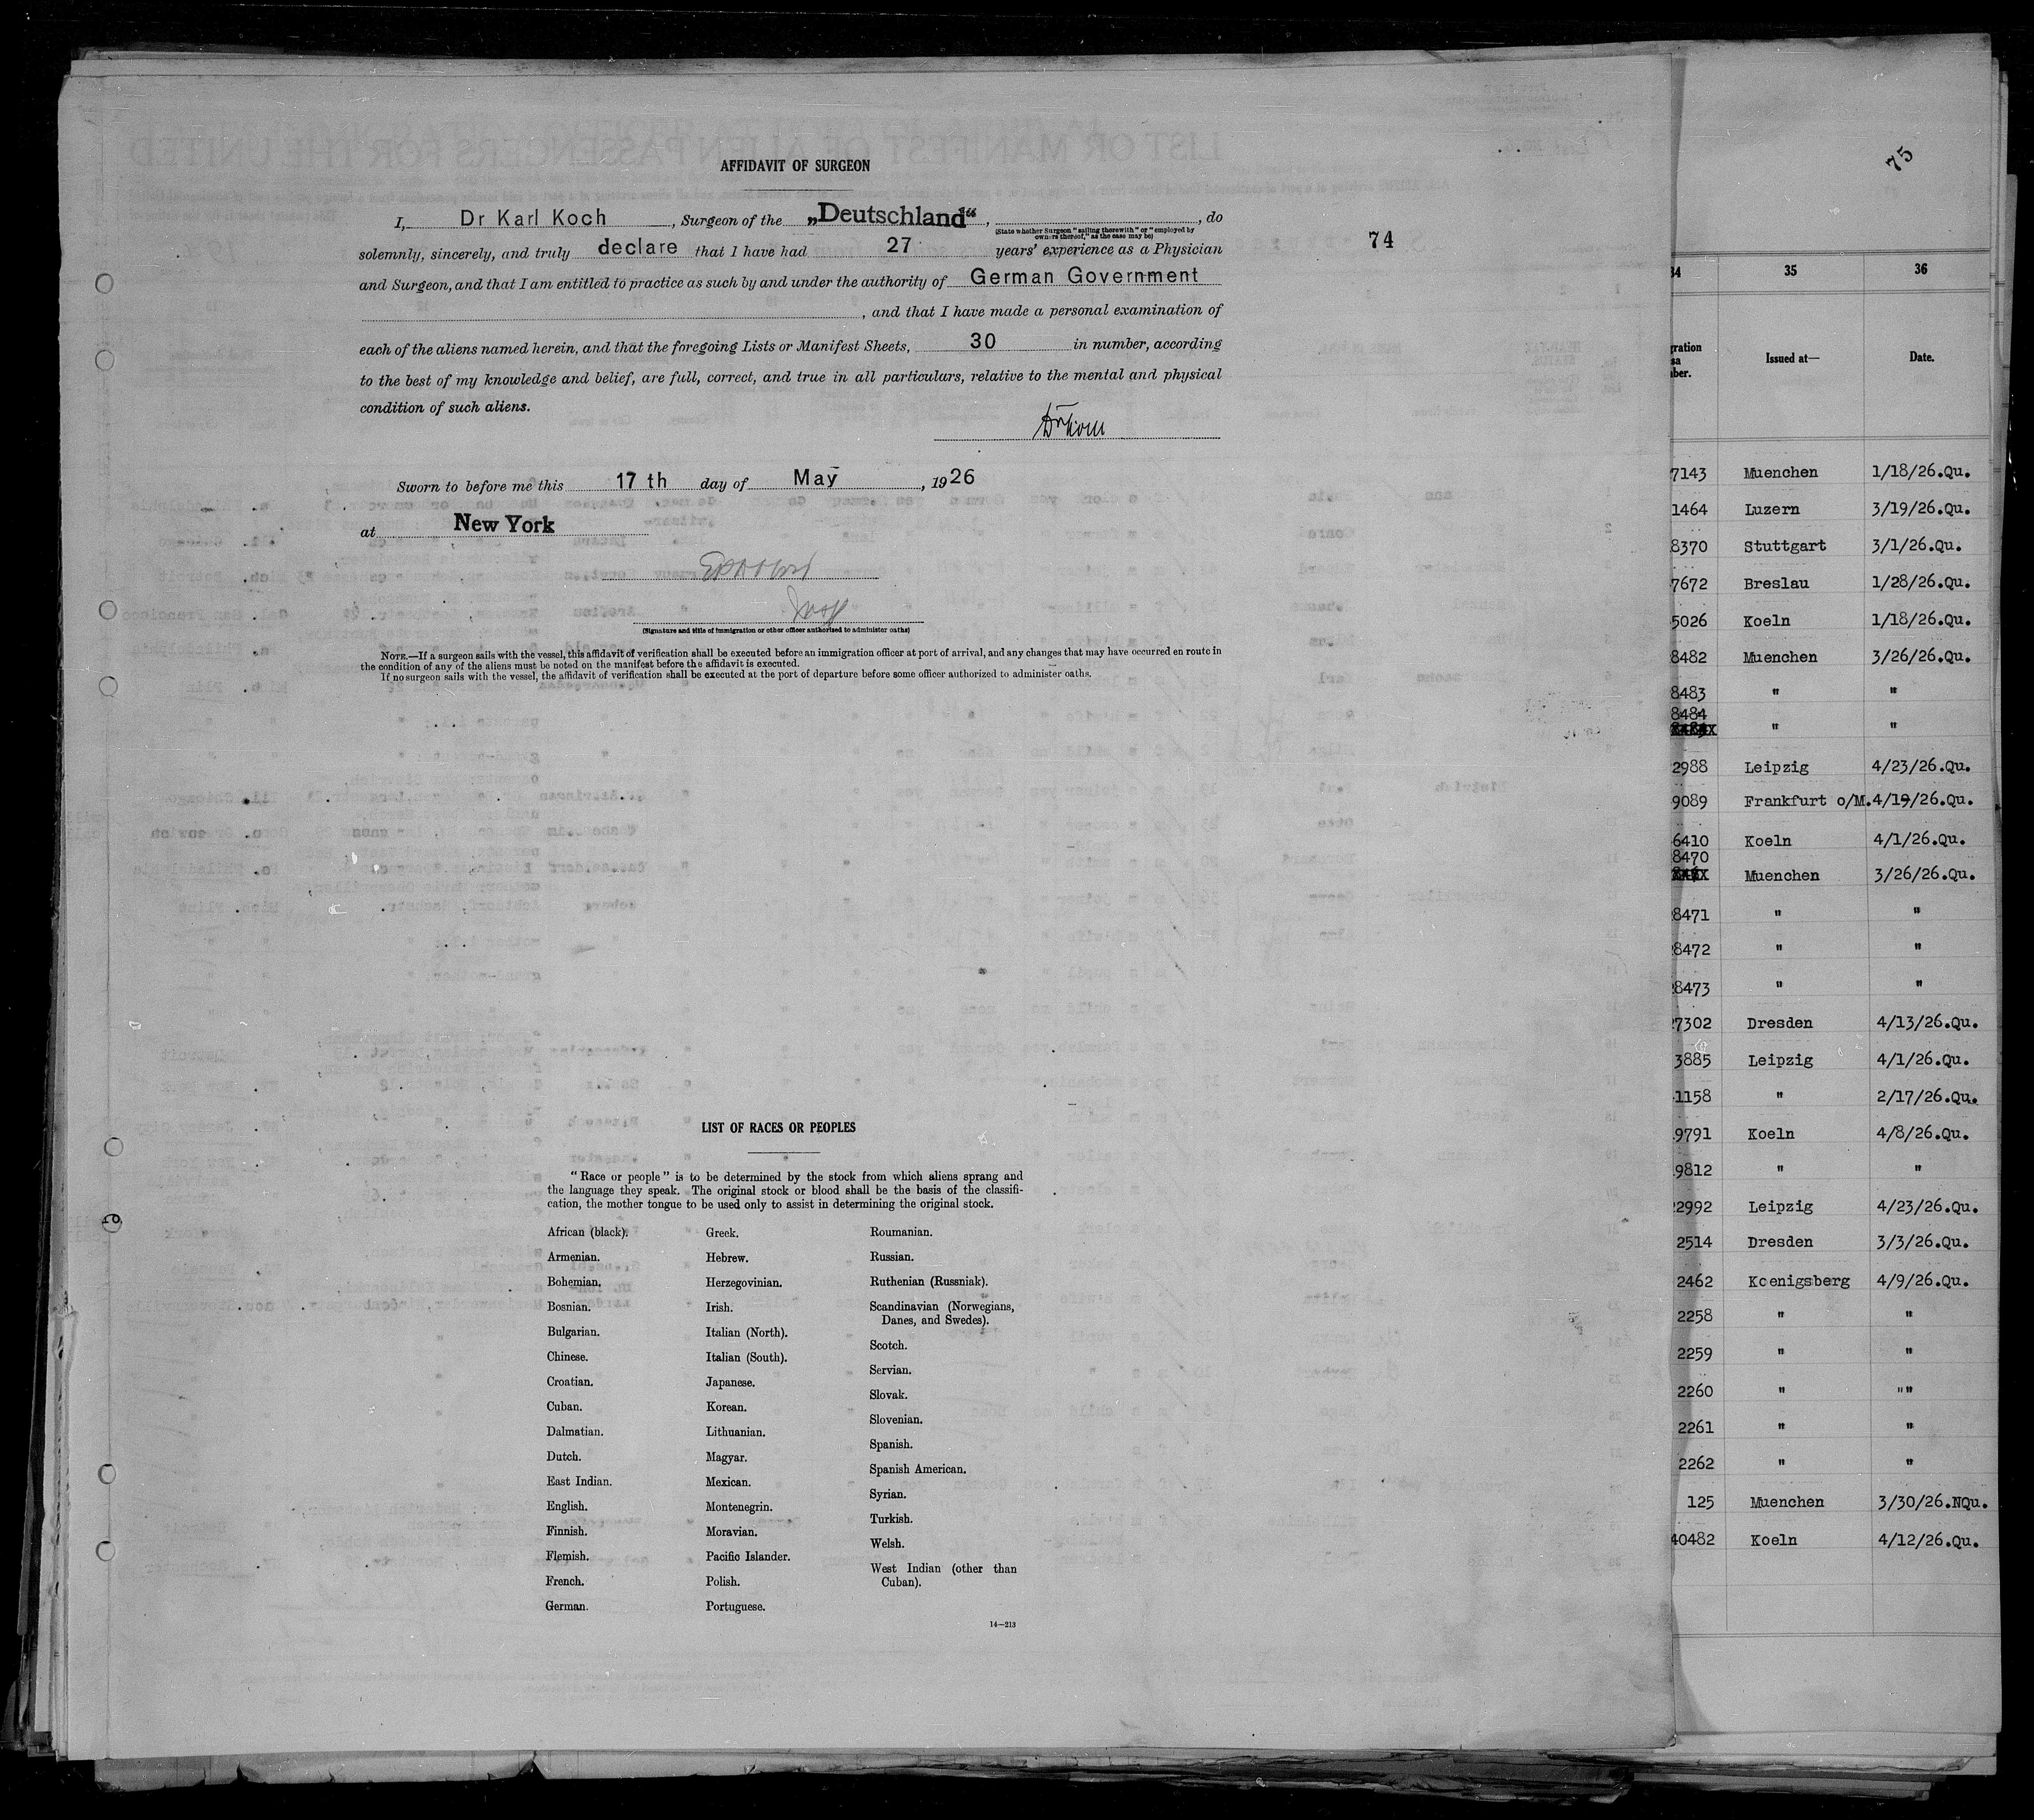 AFFIDAVIT OF SURGEON
I, Dr Karl Koch, Surgeon of the „Deutschland“, , do
(State whether Surgeon "sailing therewith" or "employed by
owners thereof," as the case may be)
solemnly, sincerely, and truly declare that I have had 27 years' experience as a Physician
and Surgeon, and that I am entitled to practice as such by and under the authority of German Government
, and that I have made a personal examination of
each of the aliens named herein, and that the foregoing Lists or Manifest Sheets, 30 in number, according
to the best of my knowledge and belief, are full, correct, and true in all particulars, relative to the mental and physical
condition of such aliens.
Sworn to before me this 17 th day of May, 1926
at New York
(Signature and title of immigration or other officer authorized to administer oaths)
NOTE.—If a surgeon sails with the vessel, this affidavit of verification shall be executed before an immigration officer at port of arrival, and any changes that may have occurred en route in
the condition of any of the aliens must be noted on the manifest before the affidavit is executed.
If no surgeon sails with the vessel, the affidavit of verification shall be executed at the port of departure before some officer authorized to administer oaths.
74
LIST OF RACES OR PEOPLES
"Race or people" is to be determined by the stock from which aliens sprang and
the language they speak. The original stock or blood shall be the basis of the classifi-
cation, the mother tongue to be used only to assist in determining the original stock.
African (black).
Armenian.
Bohemian.
Bosnian.
Bulgarian.
Chinese.
Croatian.
Cuban.
Dalmatian.
Dutch.
East Indian.
English.
Finnish.
Flemish.
French.
German.
Greek.
Hebrew.
Herzegovinian.
Irish.
Italian (North).
Italian (South).
Japanese.
Korean.
Lithuanian.
Magyar.
Mexican.
Montenegrin.
Moravian.
Pacific Islander.
Polish.
Portuguese.
Roumanian.
Russian.
Ruthenian (Russniak).
Scandinavian (Norwegians,
Danes, and Swedes).
Scotch.
Servian.
Slovak.
Slovenian.
Spanish.
Spanish American.
Syrian.
Turkish.
Welsh.
West Indian (other than
Cuban).
14—213
75
34 35 36
Issued at— Date.
7143 Muenchen 1/18/26.Qu.
1464 Luzern 3/19/26.Qu.
8370 Stuttgart 3/1/26.Qu.
7672 Breslau 1/28/26.Qu.
5026 Koeln 1/18/26.Qu.
8482 Muenchen 3/26/26.Qu.
8483 " "
8484
" "
2988 Leipzig 4/23/26.Qu.
9089 Frankfurt o/M. 4/19/26.Qu.
6410 Koeln 4/1/26.Qu.
8470
Muenchen 3/26/26.Qu.
8471 " "
8472 " "
8473 " "
7302 Dresden 4/13/26.Qu.
3885 Leipzig 4/1/26.Qu.
1158 " 2/17/26.Qu.
9791 Koeln 4/8/26.Qu.
9812 " "
2992 Leipzig 4/23/26.Qu.
2514 Dresden 3/3/26.Qu.
2462 Koenigsberg 4/9/26.Qu.
2258 " "
2259 " "
2260 " ""
2261 " "
2262 " "
125 Muenchen 3/30/26.NQu.
40482 Koeln 4/12/26.Qu.